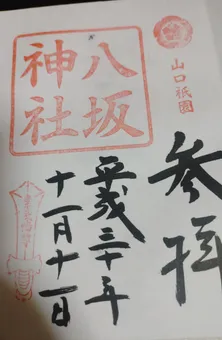 参拝
山口祇園
八坂
神社
平成三十年
十一月十一日